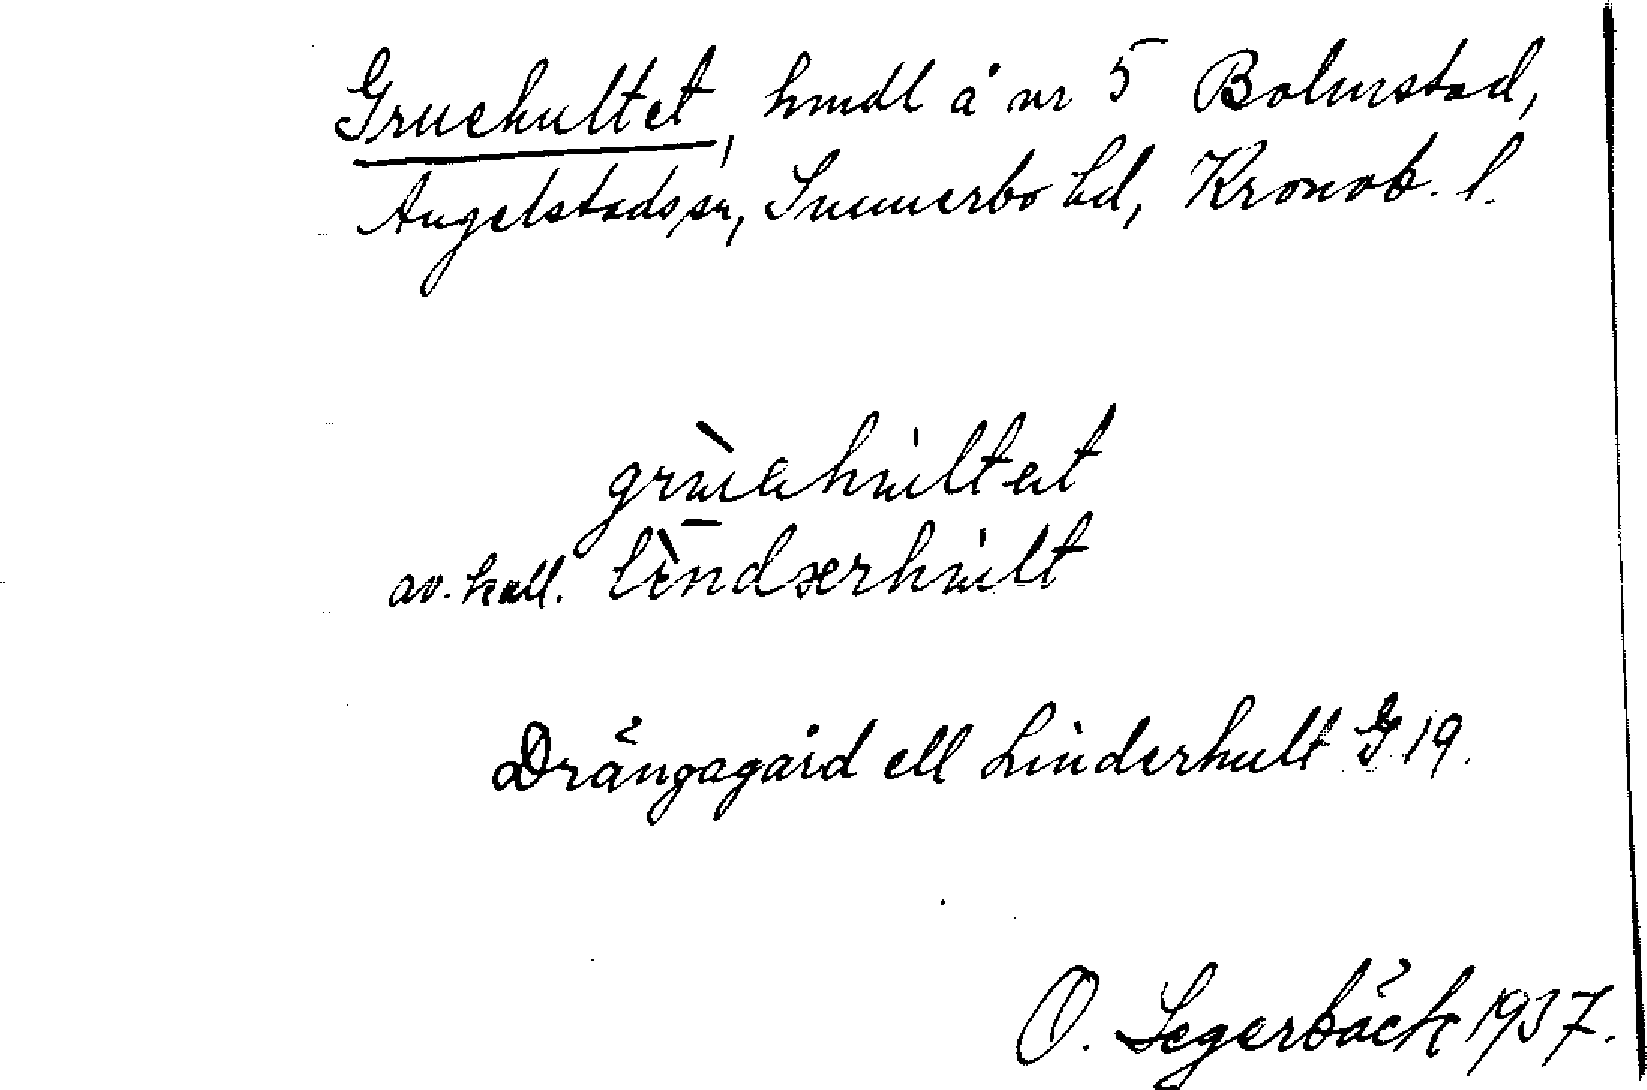 Gruehultet, hmdl å nr 5 Bolmstad,
Angelstads sn, Sunnerbo hd, Kronob. l.
grùahultat
av. käll. lìndsərhult
Drängagård ell Linderhult G 19.
O. Segerbäck 1937.